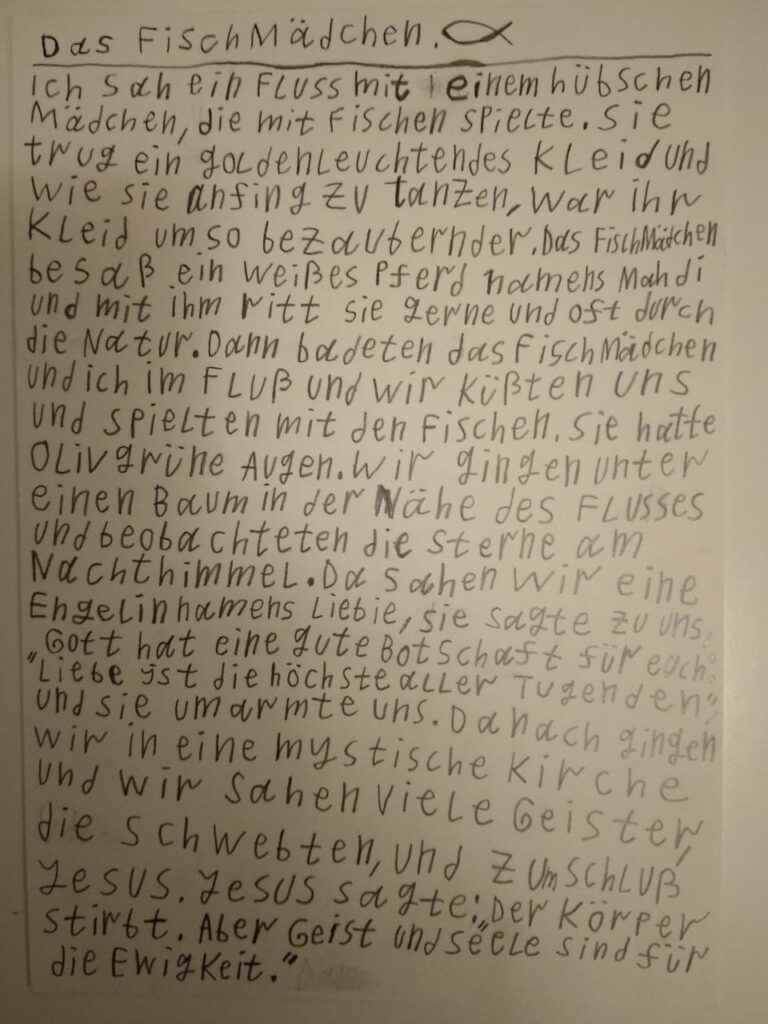 Das FischMädchen.
ich sah ein Fluss mit einem hübschen
Mädchen, die mit Fischen spielte. Sie
trug ein goldenleuchtendes Kleid und
wie sie anfing zu tanzen, war ihr
Kleid umso bezaubernder. Das FischMädchen
besaß ein weißes Pferd namens Mahdi
und mit ihm ritt sie gerne und oft durch
die Natur. Dann badeten das FischMädchen
und ich im Fluß und wir küßten uns
und spielten mit den Fischen. Sie hatte
Olivgrüne Augen. Wir gingen unter
einen Baum in der Nähe des Flusses
und beobachteten die Sterne am
Nachthimmel. Da sahen wir eine
Engelin namens Liebie, sie sagte zu uns:
„Gott hat eine gute Botschaft für euch:
"Liebe ist die höchste aller Tugenden"
und sie umarmte uns. Danach gingen
wir in eine mystische Kirche
und wir sahen viele Geister,
die schwebten, und zum schluß,
Jesus. Jesus sagte: „Der Körper
stirbt. Aber Geist und seele sind für
die Ewigkeit."